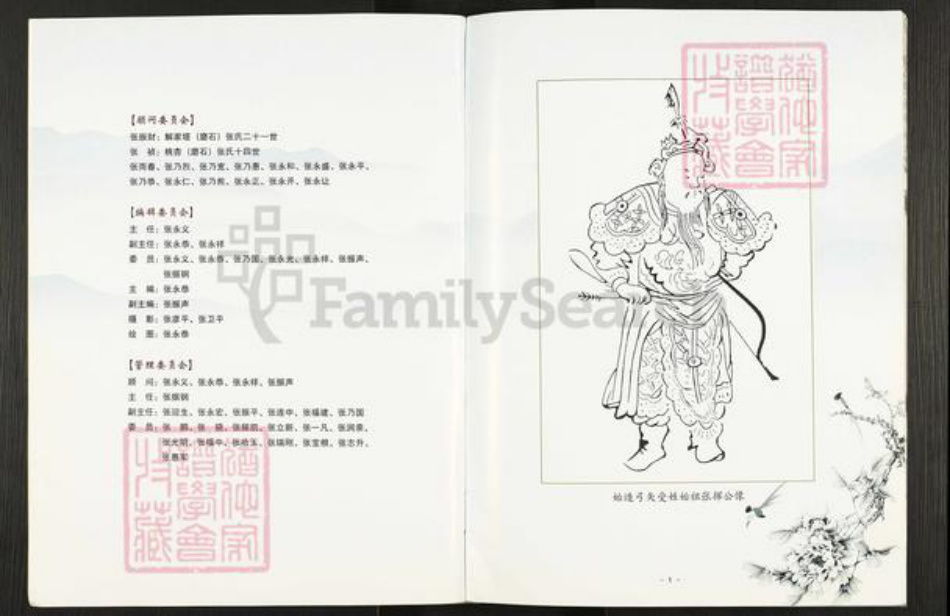 【顾问委员会】
张振财：解家堰（磨石）张氏二十一世
张 祯：桃杏（磨石）张氏十四世
张而春、张乃烈、张乃宽、张乃惠、张永和、张永盛、张永平、
张乃恭、张永仁、张乃煎、张永正、张永开、张永让
【编辑委员会】
主 任：张永义
副主任：张永恭、张永祥
委 员：张永义、张永恭、张乃国、张永光、张永祥、张振声、
张振钢
主 编：张永恭
副主编：张振声
摄 影：张彦平、张卫平
绘 图：张永恭
【管理委员会】
顾 问：张永义、张永恭、张永祥、张振声
主 任：张振钢
副主任：张迎生、张永宏、张振平、张连中、张福建、张乃国
委 员：张 鹏、张立新、张一凡、张润泉、
张光明、张福中、张瑞刚、张宝根、张志升、
FamilySear
始造弓矢受姓始祖张挥公像
- 1 -